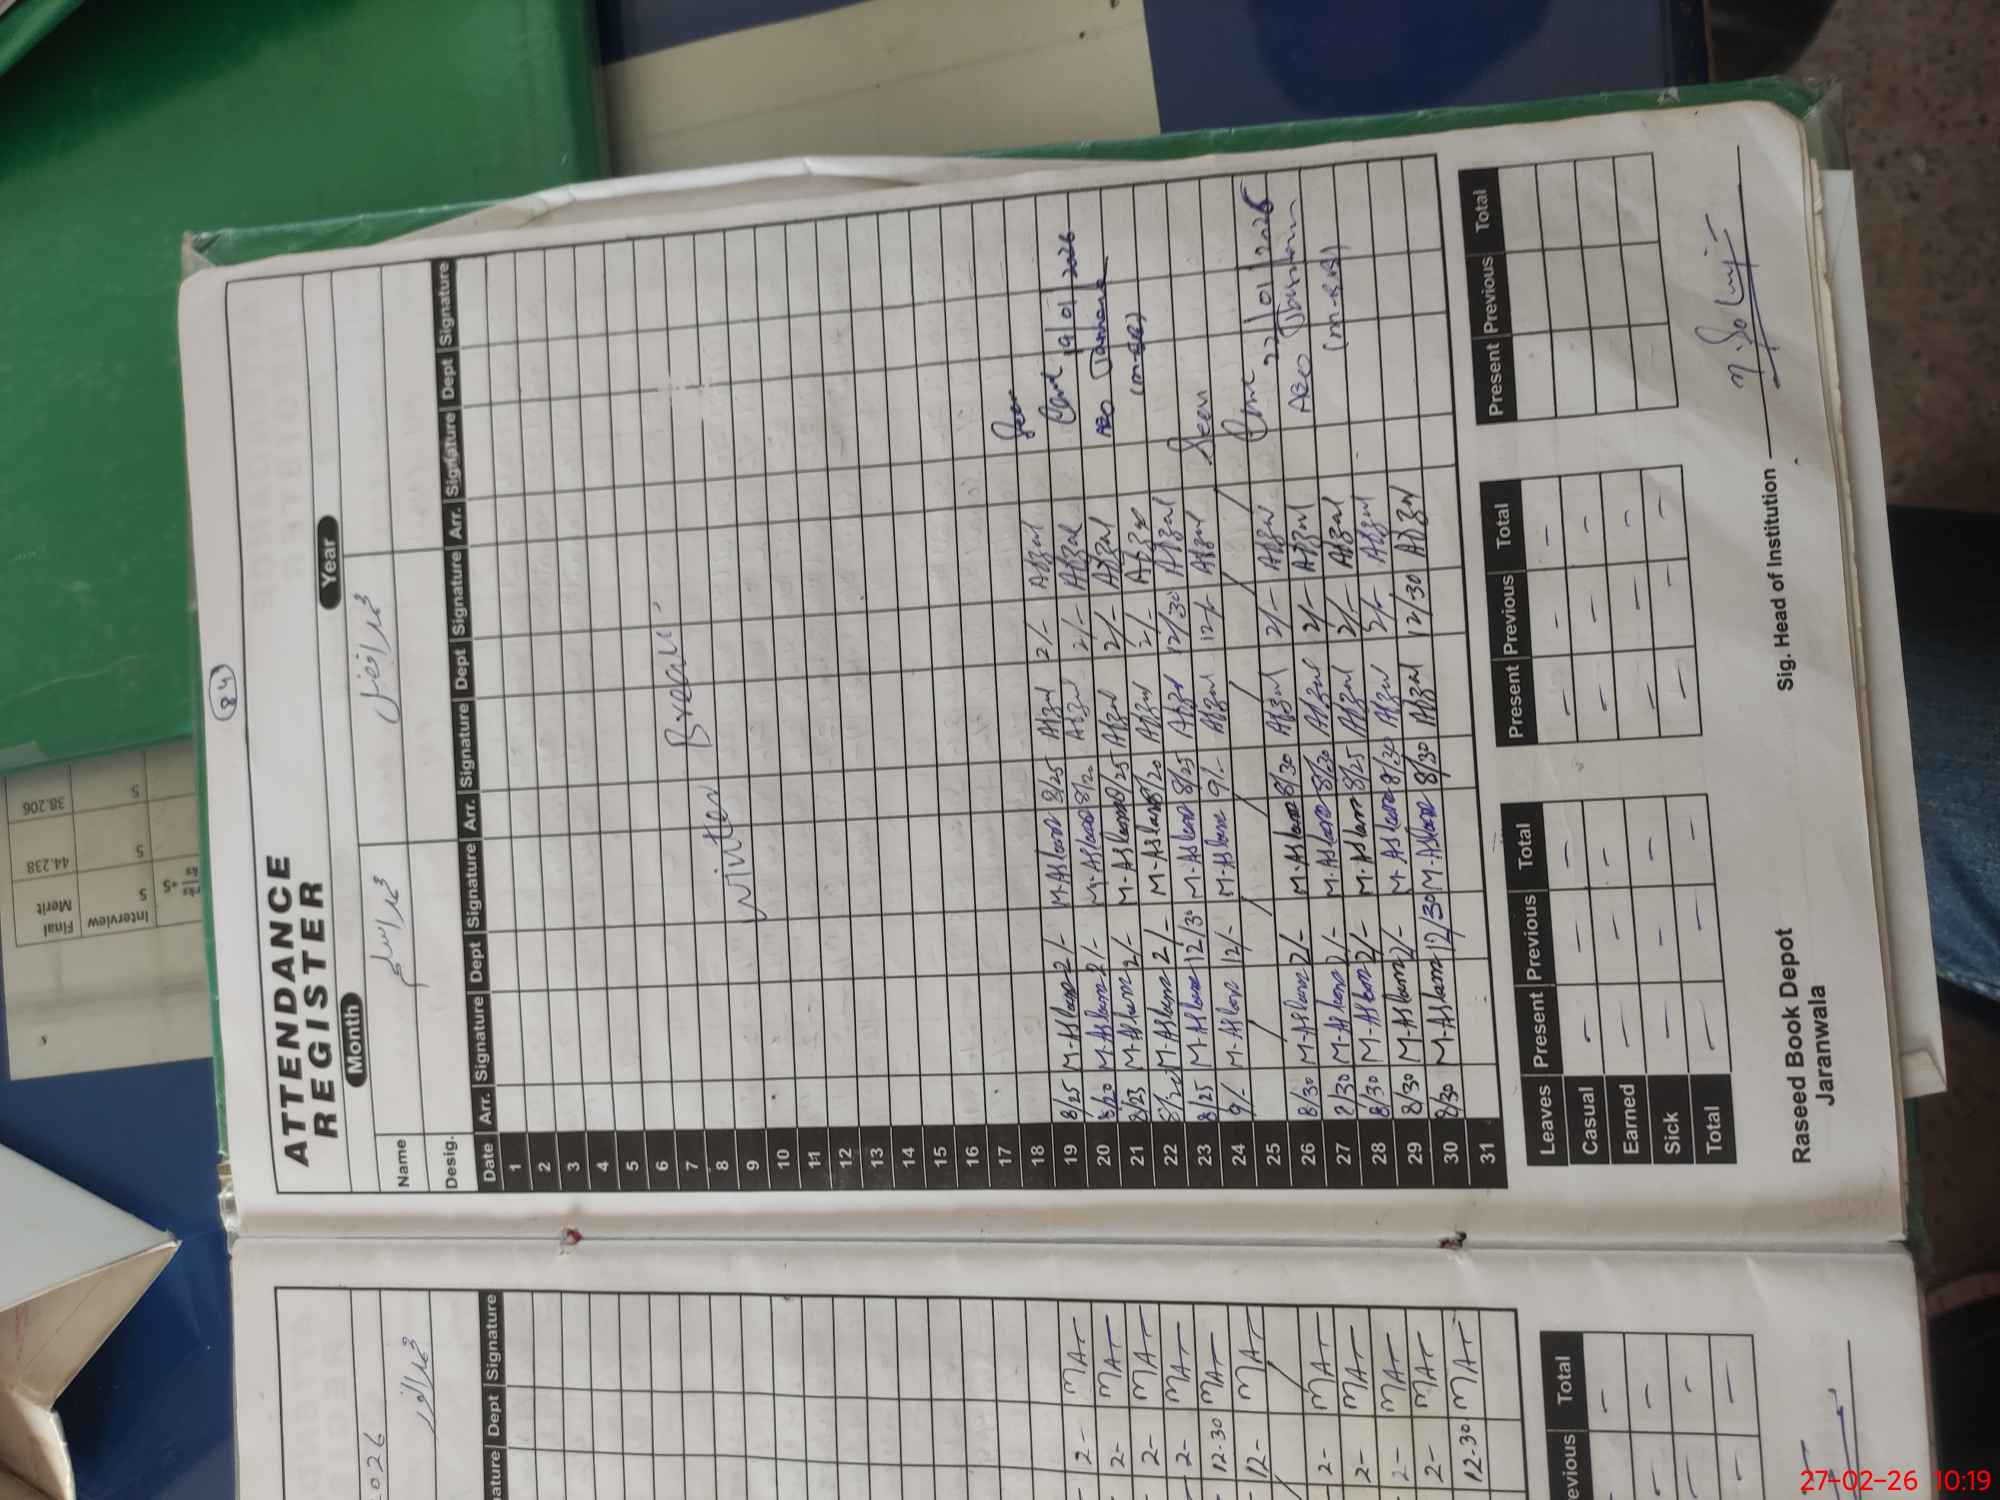 84
ATTENDANCE
REGISTER
Month Year
Name محمد اسلم محمد افضل
Desig.
Date Arr. Signature Dept Signature Arr. Signature Dept Signature Arr. Signature Dept Signature
1
2
3
4
5
6
7
8
9
Winter Break
10
11
12
13
14
15
16
17
18
19 8/25 M-Aslam 2/- M-Aslam 8/25 Afzal 2/- Afzal
20 8/20 M-Aslam 2/- M-Aslam 8/20 Afzal 2/- Afzal
21 8/25 M-Aslam 2/- M-Aslam 8/25 Afzal 2/- Afzal
22 M-Aslam 2/- M-Aslam 8/20 Afzal 2/- Afzal
23 8/25 M-Aslam 12/30 M-Aslam 8/25 Afzal 12/30 Afzal
24 9/- M-Aslam 12/- M-Aslam 9/- Afzal 12/- Afzal
25
26 8/30 M-Aslam 2/- M-Aslam 8/30 Afzal 2/- Afzal
27 8/30 M-Aslam 2/- M-Aslam 8/20 Afzal 2/- Afzal
28 8/30 M-Aslam 2/- M-Aslam 8/25 Afzal 2/- Afzal
29 8/30 M-Aslam 2/- M-Aslam 8/30 Afzal 2/- Afzal
30 8/30 M-Aslam 12/30 M-Aslam 8/30 Afzal 12/30 Afzal
31
Seen
19/01/2026
AEO
Seen
22/01/2026
AEO
Leaves Present Previous Total Present Previous Total Present Previous Total
Casual - - - - - -
Earned - - - - - -
Sick - - - - - -
Total - - - - - -
Raseed Book Depot
Jaranwala
Sig. Head of Institution
2026
Signature Dept Signature
2- MAT
2- MAT
2- MAT
2- MAT
12-30 MAT
12- MAT
2- MAT
2- MAT
2- MAT
2- MAT
12-30 MAT
Previous Total
Final Merit 44.238 38.206
Interview 5 5 5
27-02-26 10:19